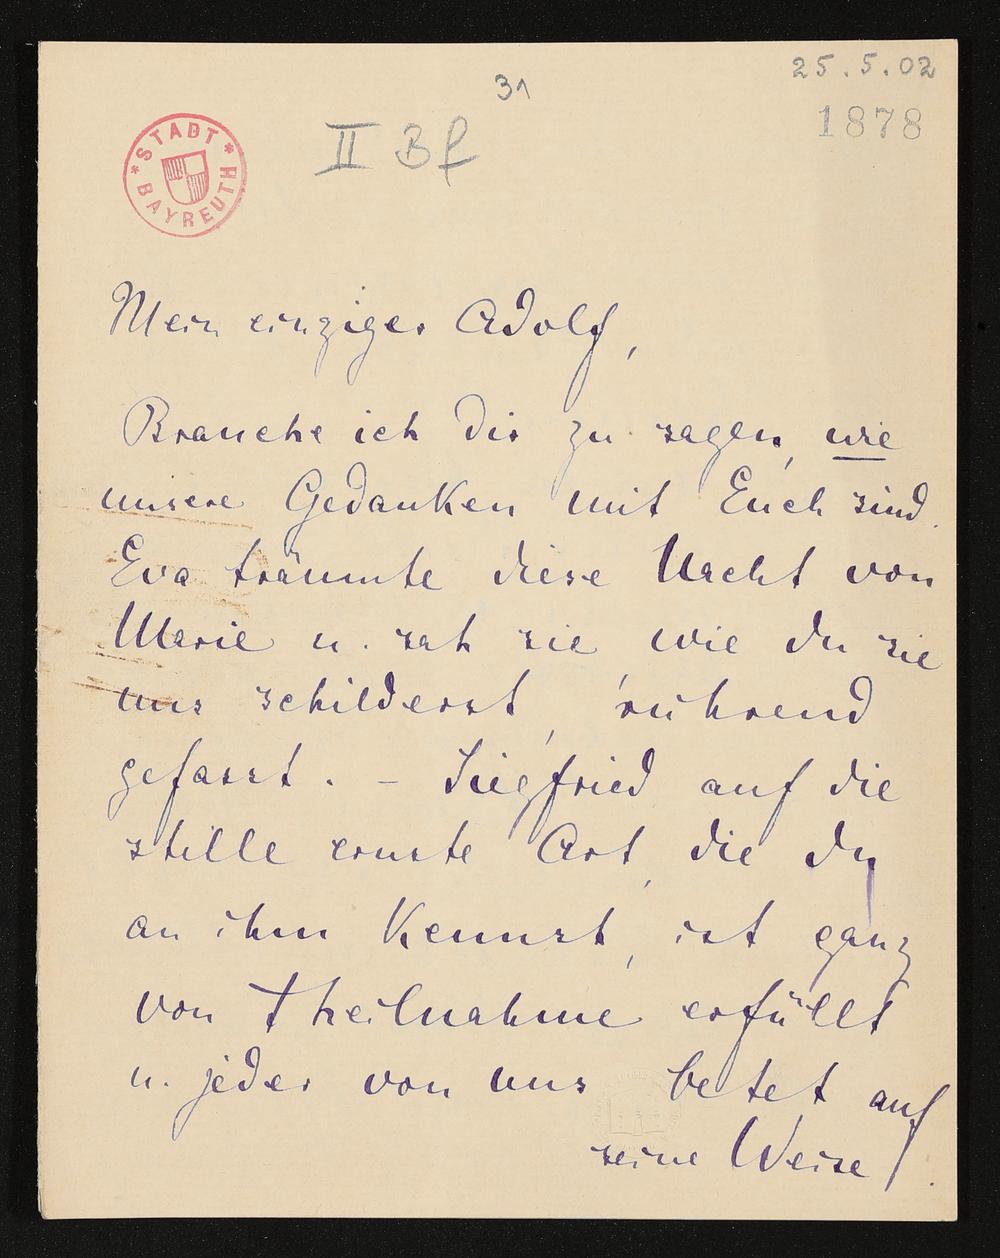 25.5.02
31
1878
II Bf
STADT BAYREUTH
Mein einziger Adolf,
Brauche ich dir zu sagen, wie
unsere Gedanken mit Euch sind.
Eva träumte diese Nacht von
Marie u. sah sie wie du sie
uns schilderst, rührend
gefasst. – Siegfried auf die
stille ernste Art, die du
an ihm kennst, ist ganz
von Theilnahme erfüllt
u. jeder von uns betet auf
seine Weise.